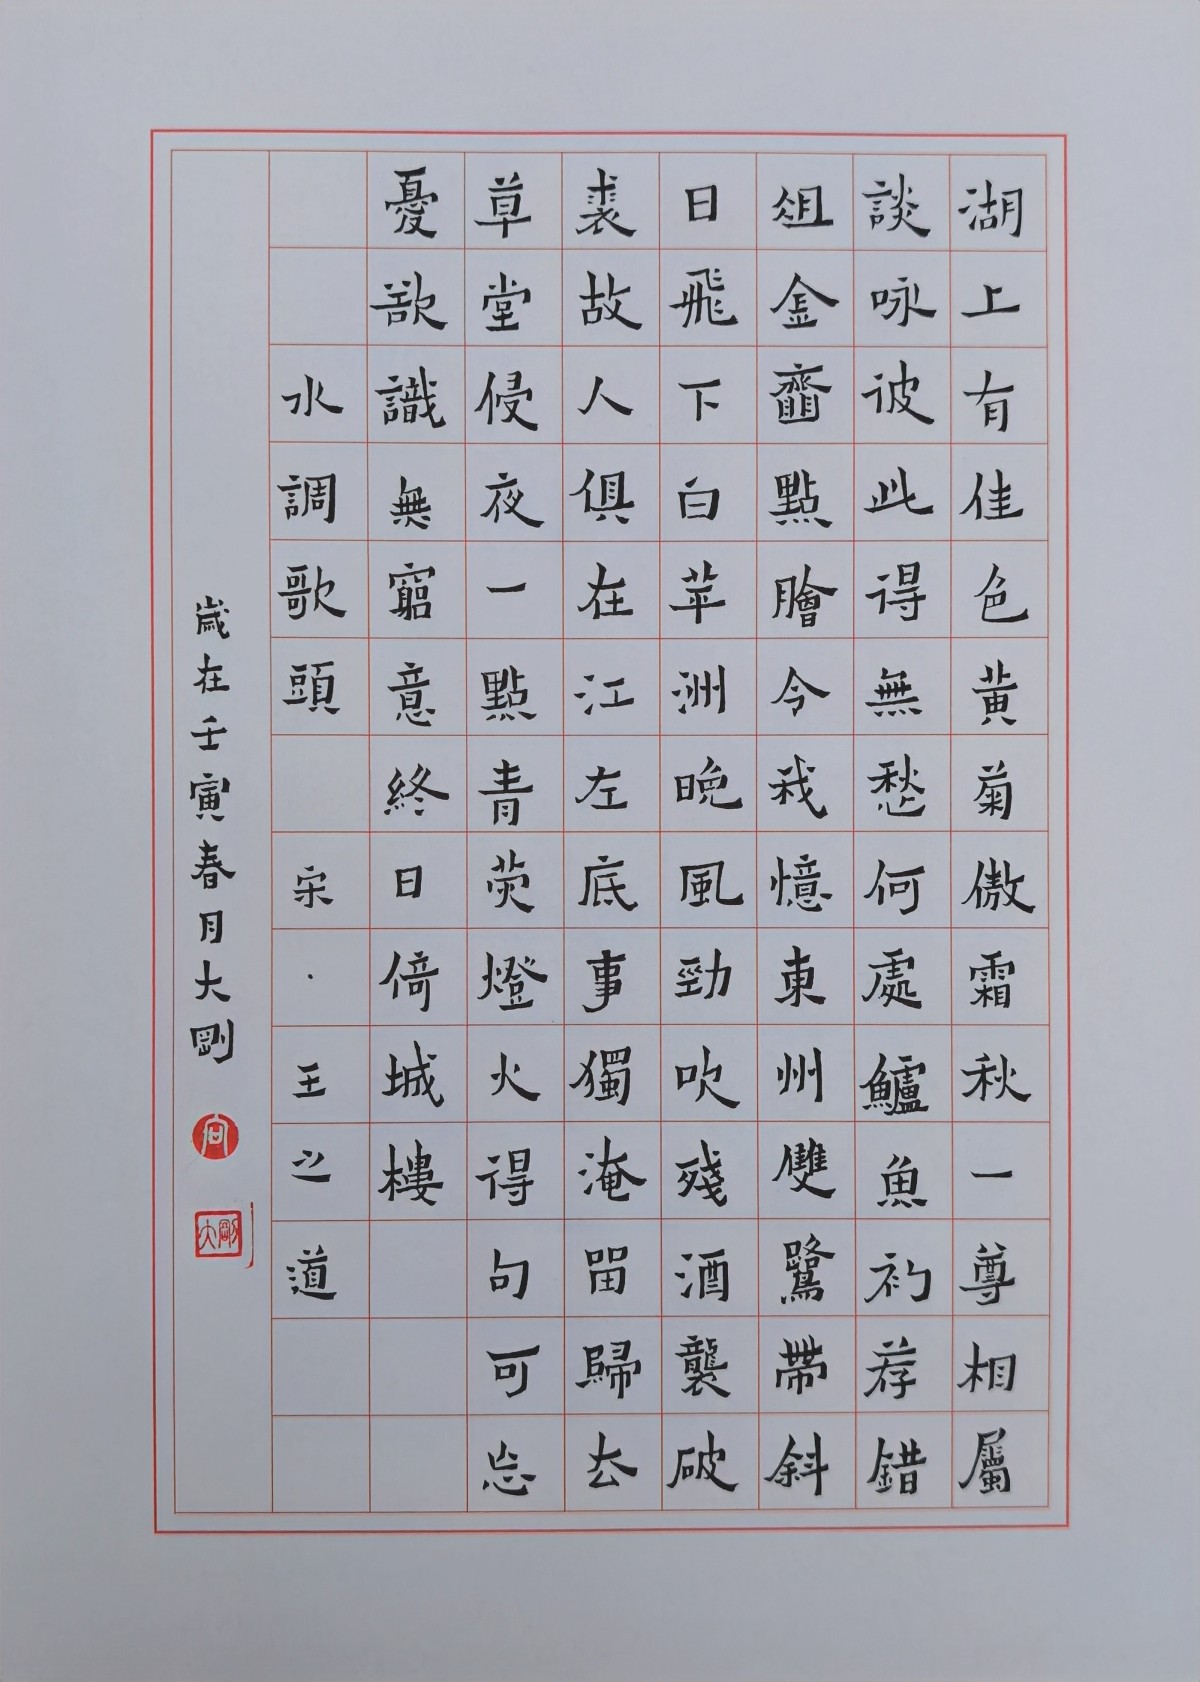 湖上有佳色黃菊傲霜秋一尊相屬
談咏彼此得無愁何處鱸魚礿荐錯
俎金虀點膾今我憶東州雙鷺帶斜
日飛下白苹洲晚風勁吹殘酒襲破
裘故人俱在江左底事獨淹畱歸去
草堂侵夜一點青熒燈火得句可忘
憂欲識無窮意終日倚城樓
水調歌頭 宋·王之道
歲在壬寅春月大剛
大剛